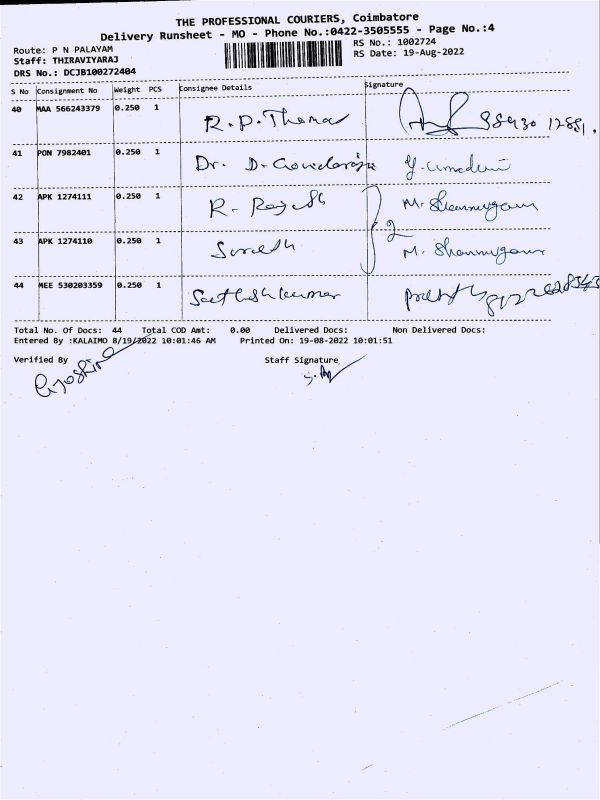 THE PROFESSIONAL COURIERS, Coimbatore
Delivery Runsheet - MO - Phone No.:0422-3505555 - Page No.:4
Route: P N PALAYAM RS No.: 1002724
Staff: THIRAVIYARAJ RS Date: 19-Aug-2022
DRS No.: DCJB100272404
S No Consignment No Weight PCS Consignee Details Signature
40 MAA 566243379 0.250 1 R.P. Thomas
41 PON 7982401 0.250 1 Dr. D. Y. Umadevi
42 APK 1274111 0.250 1 R. Rajesh M. Shanmugam
2
43 APK 1274110 0.250 1 Suresh M. Shanmugam
44 MEE 530203359 0.250 1 Sathishkumar
Total No. Of Docs: 44 Total COD Amt: 0.00 Delivered Docs: Non Delivered Docs:
Entered By :KALAIMO 8/19/2022 10:01:46 AM Printed On: 19-08-2022 10:01:51
Verified By Staff Signature